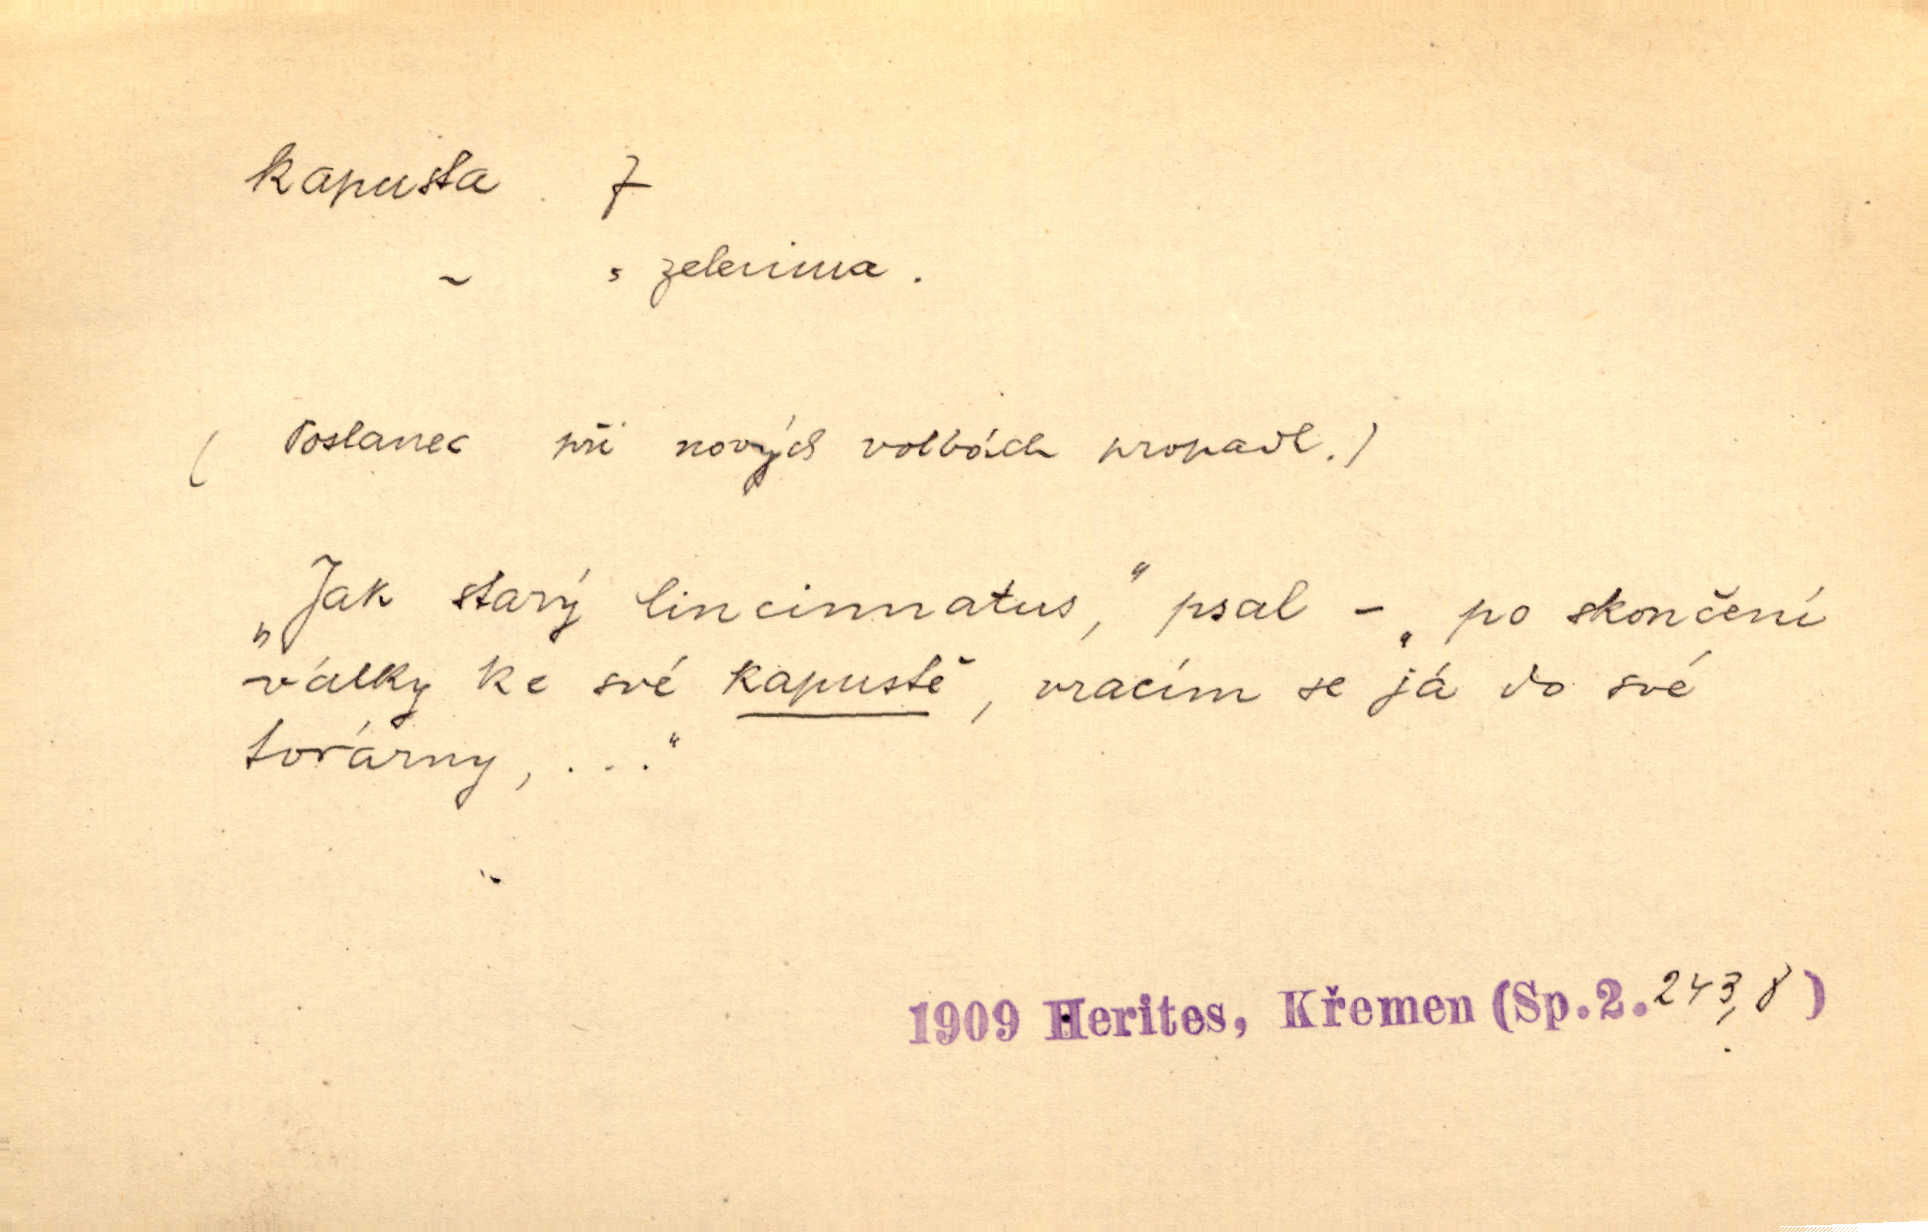 kapusta f
~ , zelenina.
( Poslanec při nových volbách propadl.)
„Jak starý Cincinnatus,“ psal – „po skončení
války ke své kapustě, vracím se já do své
továrny, ...“
1909 Herites, Křemen (Sp.2. 243, 8)